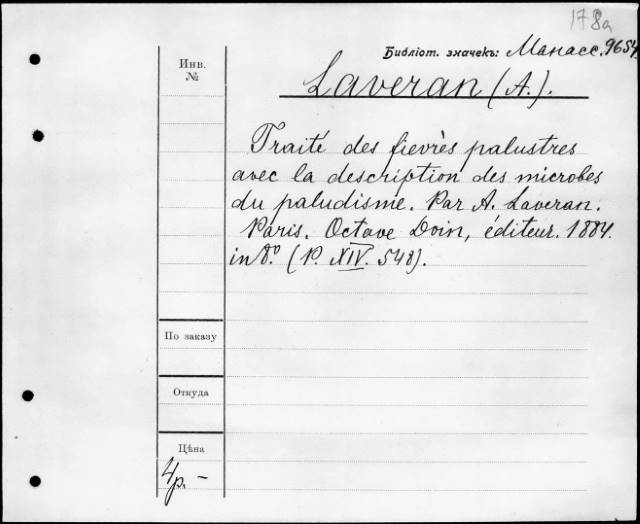 178a
Библіот. значекъ: Манасс. 9654.
Инв.
№
Laveran (A.).
Traité des fievrès palustres
avec la description des microbes
du paludisme. Par A. Laveran.
Paris. Octave Doin, éditeur. 1884.
in 8.º (P. XIV. 548).
По заказу
Откуда
Цѣна
4р. –